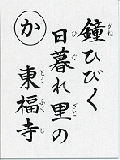 鐘ひびく
日暮れ里の
東福寺
か